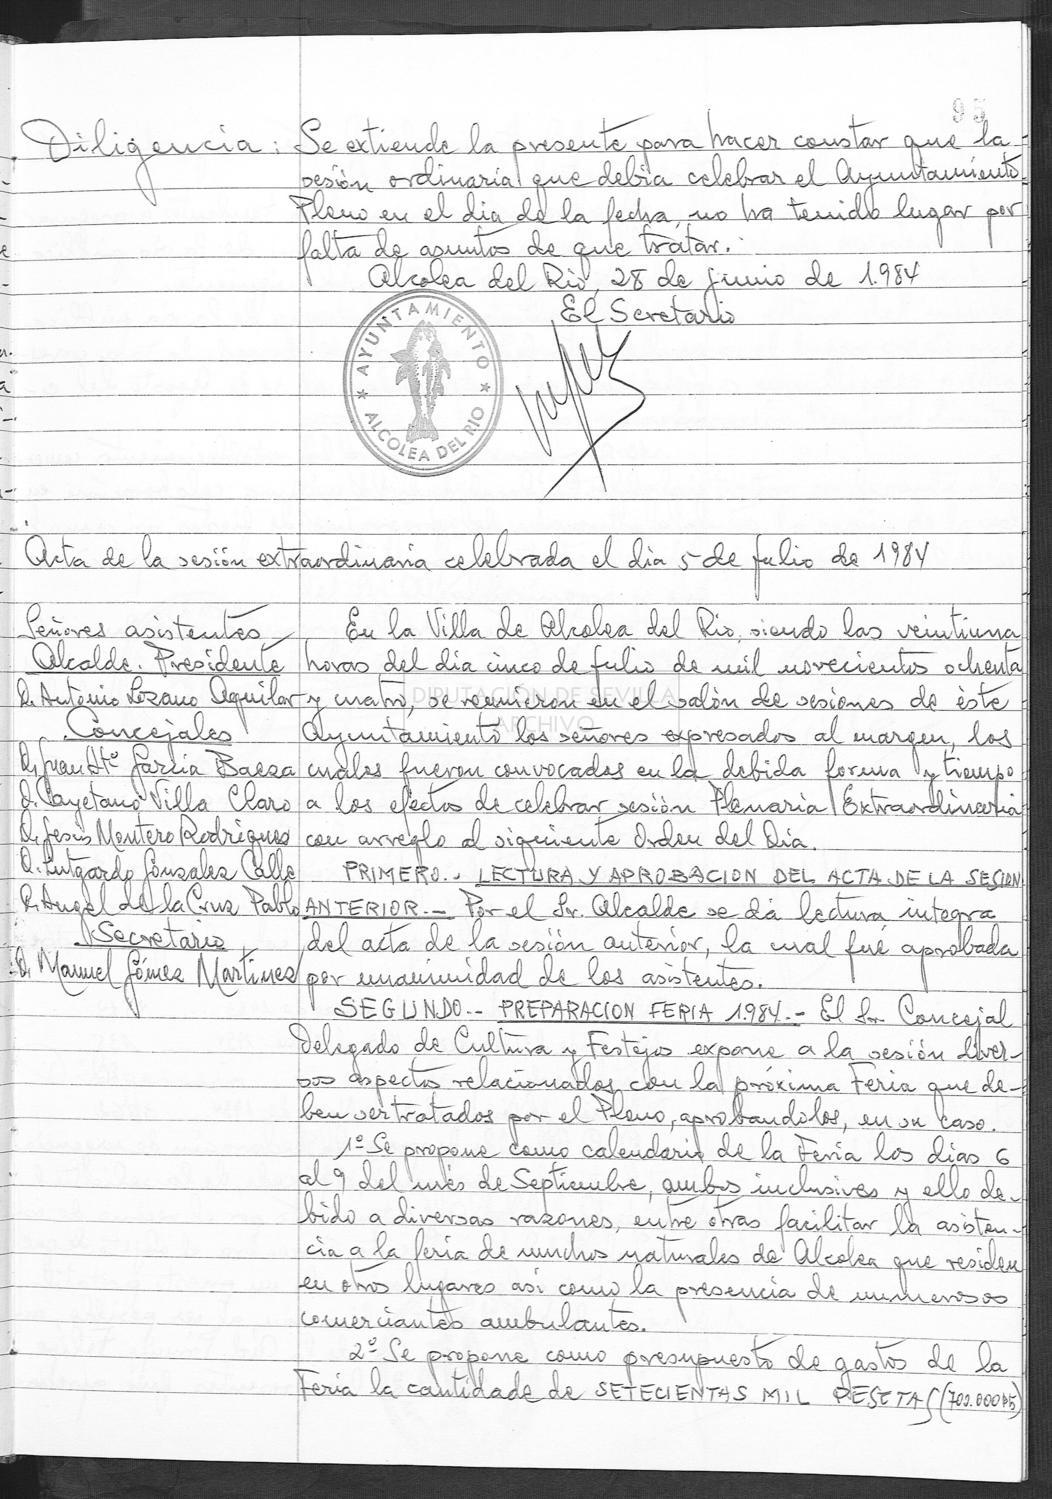 95
Diligencia: Se extiende la presente para hacer constar que la
sesión ordinaria que debía celebrar el Ayuntamiento
Pleno en el día de la fecha, no ha tenido lugar por
falta de asuntos de que tratar.
Alcolea del Río, 28 de junio de 1.984
El Secretario
AYUNTAMIENTO
ALCOLEA DEL RIO
Acta de la sesión extraordinaria celebrada el día 5 de Julio de 1984
Señores asistentes
Alcalde-Presidente
D. Antonio Lozano Aguilar
Concejales
D. Juan Mª García Baeza
D. Cayetano Villa Claro
D. Jesús Montero Rodríguez
D. Lutgardo Gonzalez Calle
D. Angel de la Cruz Pablo
Secretario
D. Manuel Gómez Martínez
En la Villa de Alcolea del Río, siendo las veintiuna
horas del día cinco de Julio de mil novecientos ochenta
y cuatro, se reunieron en el salón de sesiones de éste
Ayuntamiento los señores expresados al margen, los
cuales fueron convocados en la debida forma y tiempo
a los efectos de celebrar sesión Plenaria Extraordinaria
con arreglo al siguiente Orden del Día.
PRIMERO.- LECTURA Y APROBACION DEL ACTA DE LA SESION
ANTERIOR.- Por el Sr. Alcalde se dá lectura integra
del acta de la sesión anterior, la cual fué aprobada
por unanimidad de los asistentes.
SEGUNDO.- PREPARACION FERIA 1.984.- El Sr. Concejal
Delegado de Cultura y Festejos expone a la sesión diver-
sos aspectos relacionados con la próxima Feria que de-
ben ser tratados por el Pleno, aprobandolos, en su caso.
1º Se propone como calendario de la Feria los días 6
al 9 del mes de Septiembre, ambos inclusives y ello de-
bido a diversas razones, entre otras facilitar la asisten-
cia a la feria de muchos naturales de Alcolea que residen
en otros lugares así como la presencia de numerosos
comerciantes ambulantes.
2º Se propone como presupuesto de gastos de la
Feria la cantidade de SETECIENTAS MIL PESETAS (700.000 pts)
DIPUTACIÓN DE SEVILLA
ARCHIVO